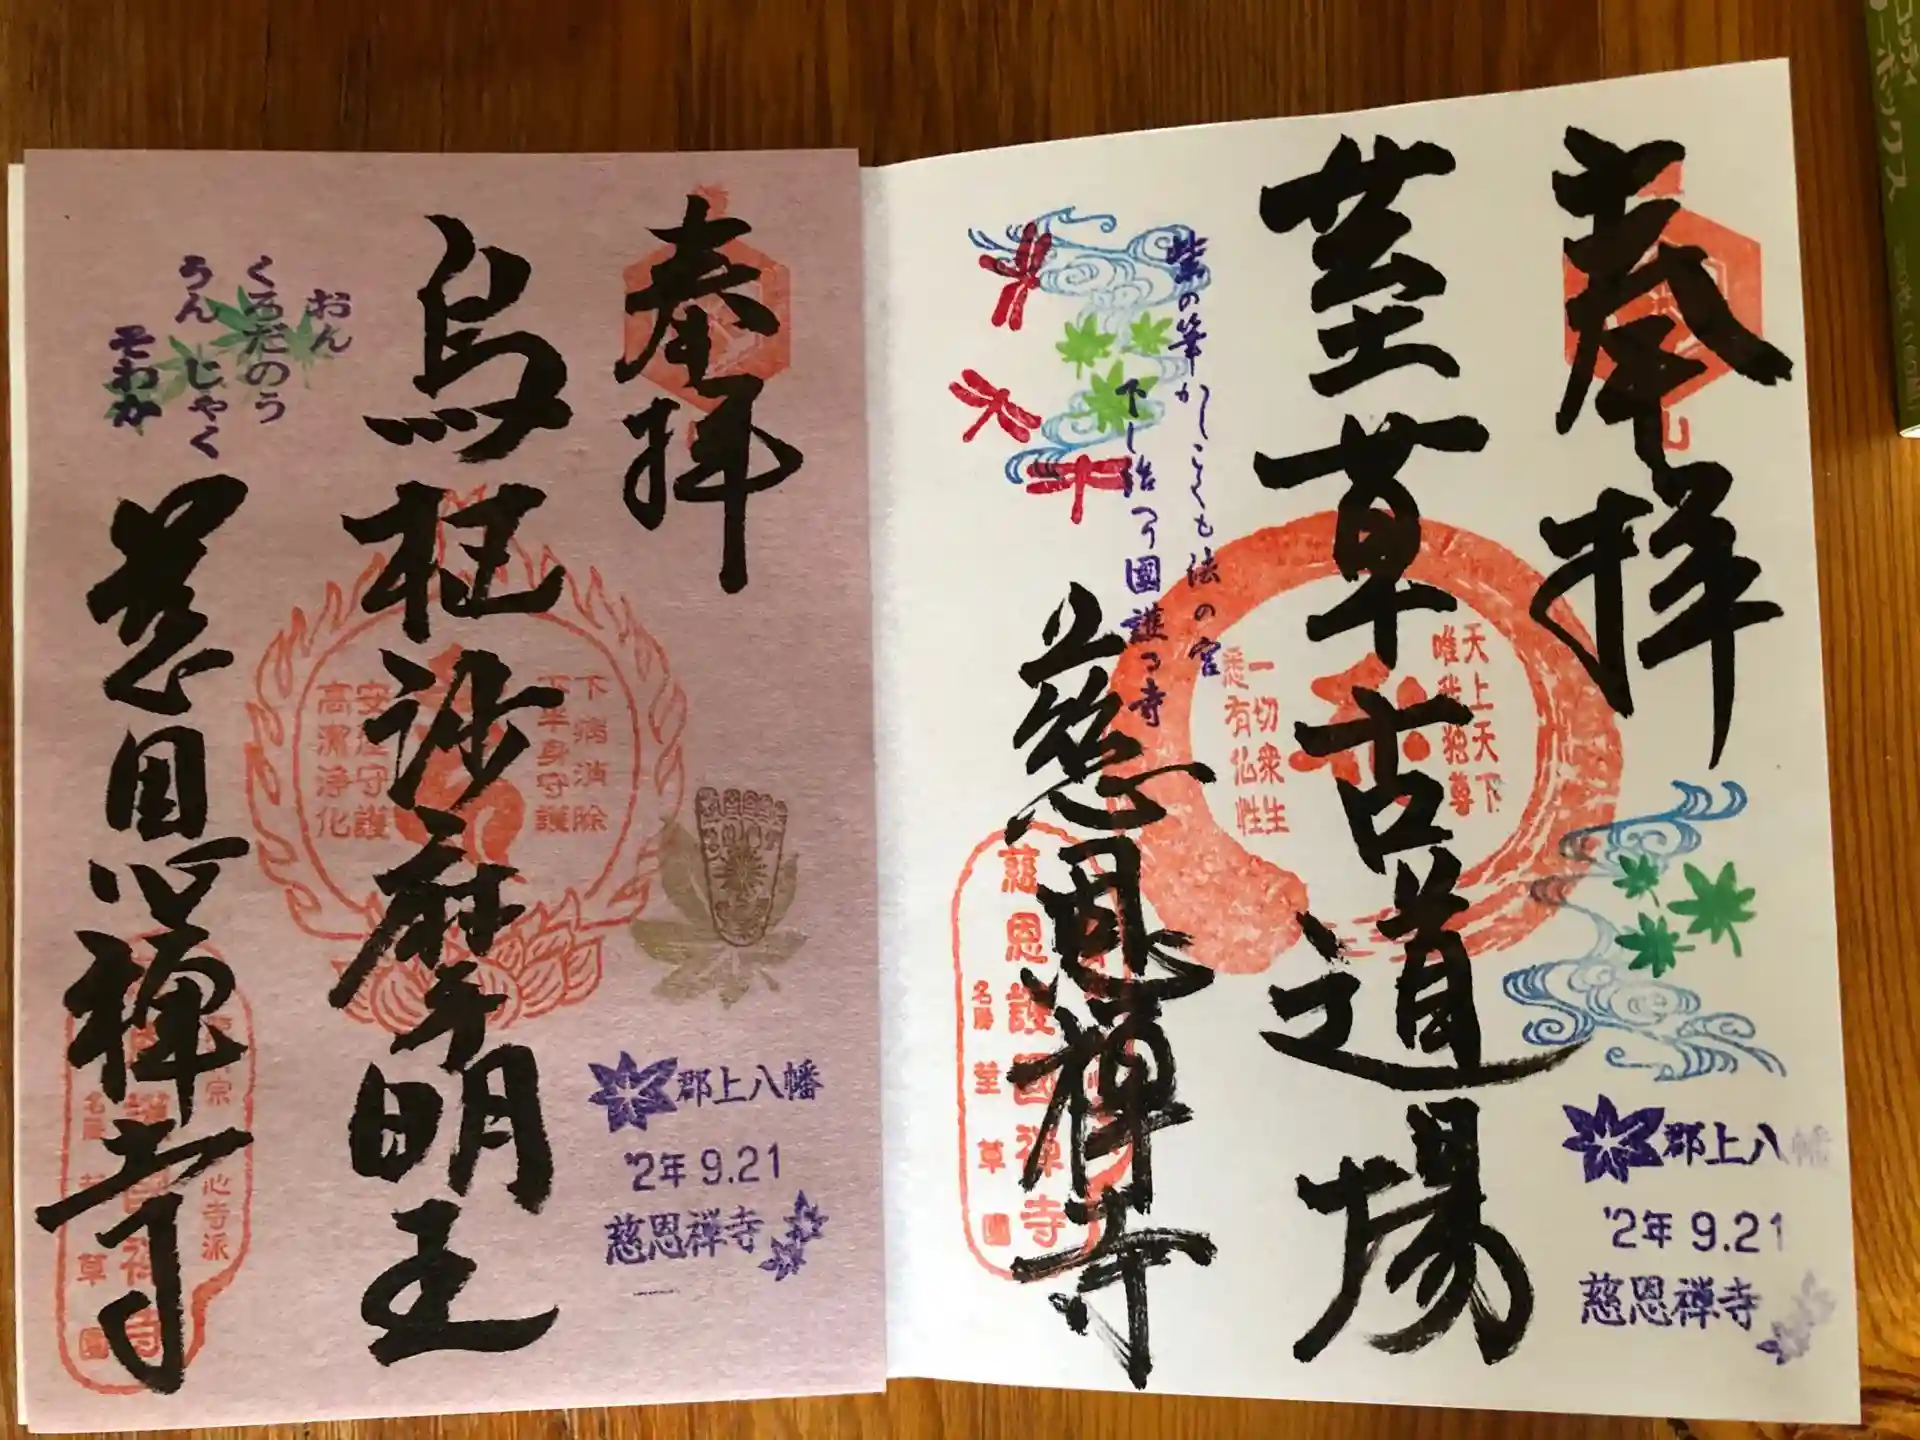 奉拝
荎草古道場
慈恩禅寺
紫の筆かしこくも法の宮
下し給へり國護る寺
天上天下
唯我独尊
一切衆生
悉有仏性
慈恩護國禅寺
名勝 荎草園
郡上八幡
'2年 9.21
慈恩禅寺
奉拝
烏枢沙摩明王
慈恩禅寺
おん
くろだのう
うん じゃく
そわか
下病消除
下半身守護
安産守護
高潔浄化
郡上八幡
'2年 9.21
慈恩禅寺